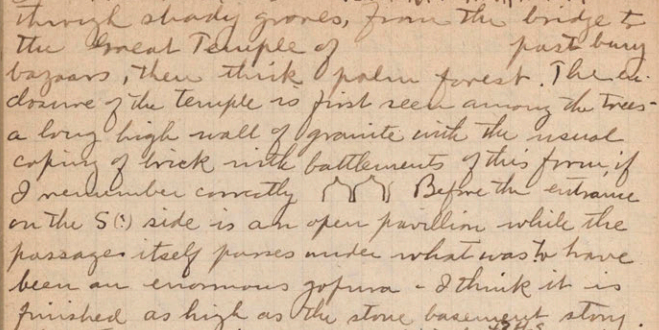 through shady groves, from the bridge to
the Great Temple of past busy
bazaars, then thick palm forest. The en-
closure of the temple is first seen among the trees -
a long high wall of granite with the usual
coping of brick with battlements of this form, if
I remember correctly Before the entrance
on the S(?) side is an open pavilion while the
passage itself passes under what was to have
been an enormous gopura - I think it is
finished as high as the stone basement story.